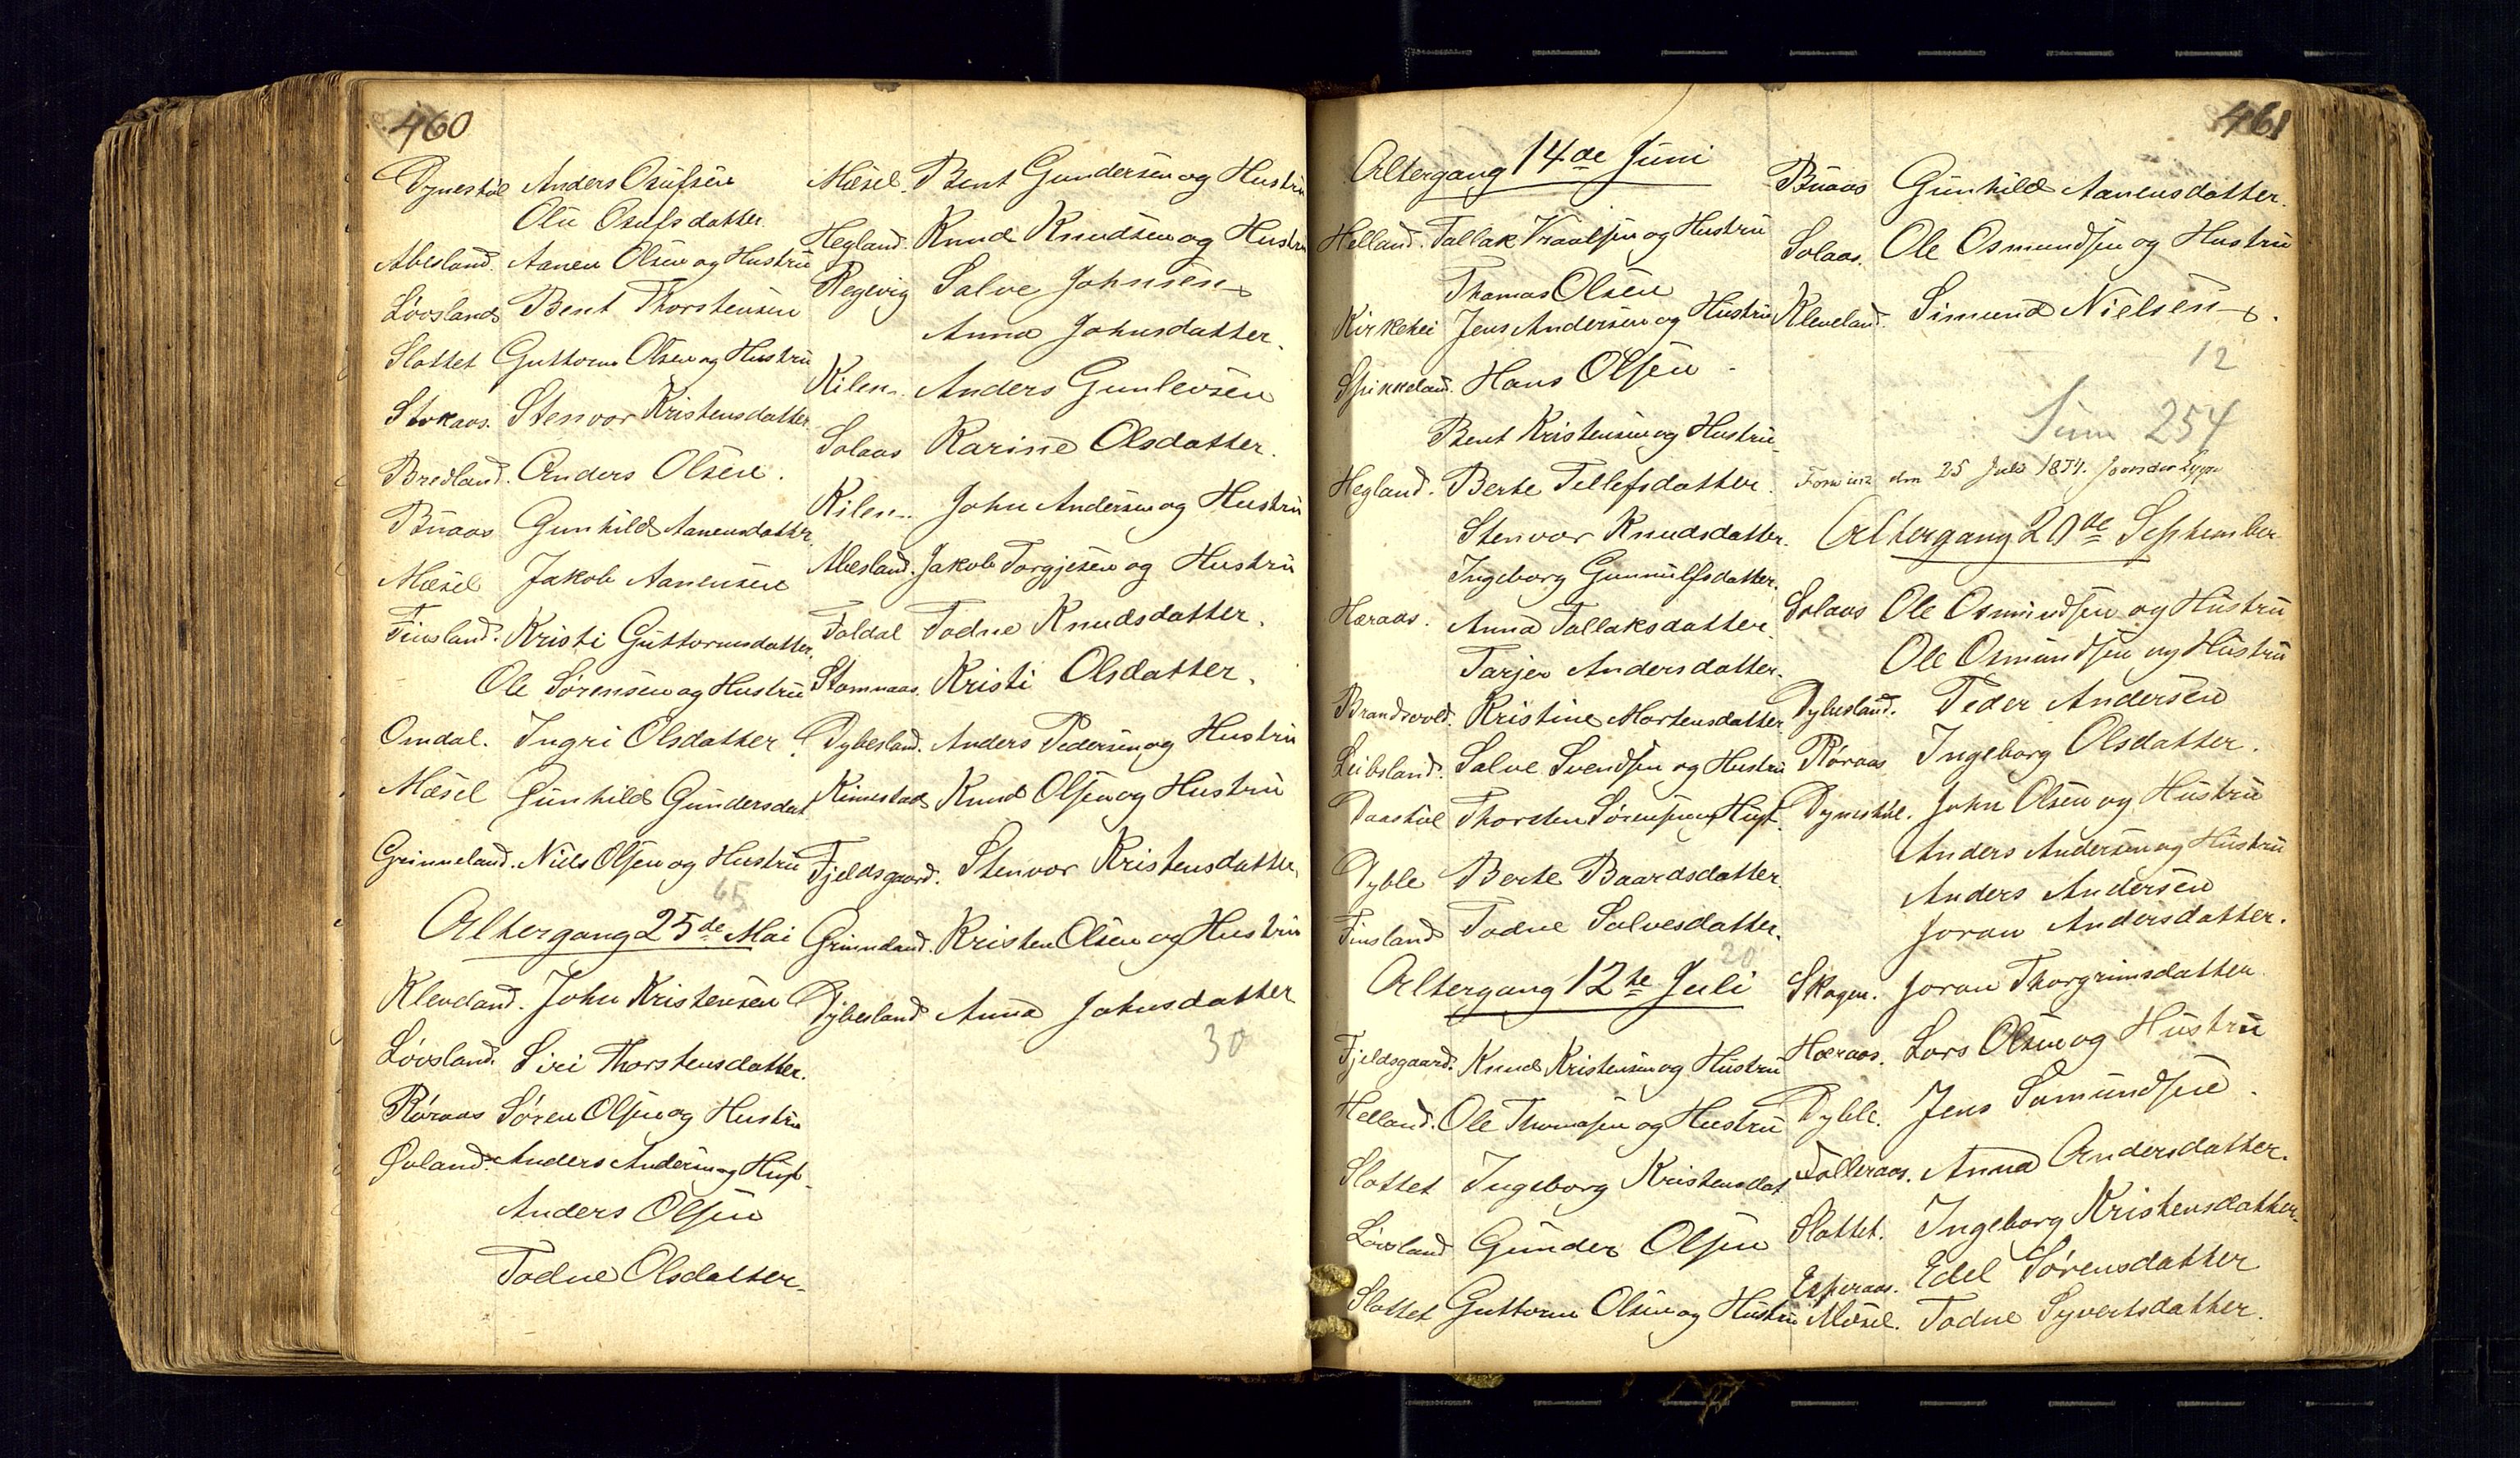 460
Dynestøl Anders Osufsen
Olu Osufsdatter
Abesland. Aanen Olsen og Hustru
Løvsland Bent Thorstensen
Slottet Guttorm Olsen og Hustru
Stokaas. Stenvor Kristensdatter
Bredland. Anders Olsen.
Buaas Gunhild Aanensdatter
Mæsel Jakob Aanensen
Finsland. Kristi Guttormsdatter.
Ole Sørensen og Hustru
Omdal. Ingri Olsdatter.
Mæsel Gunhild Gundersdat
Grinneland. Niels Olsen og Hustru
65
Altergang 25de Mai
Kleveland. John Kristensen
Løvsland. Siri Thorstensdatter.
Røraas Søren Olsen og Hustru
Øvland. Anders Andersen og Hust.
Anders Olsen
Todne Olsdatter.
Mæsel. Bent Gundersen og Hustru
Hegland. Knud Knudsen og Hustru
Regevig Salve Johnsen
Anna Johnsdatter.
Kilen. Anders Gunlevsen
Solaas Karine Olsdatter.
Kilen. John Andersen og Hustru
Abesland. Jakob Torgjesen og Hustru
Foldal Todne Knudsdatter.
Stomnaas. Kristi Olsdatter.
Dybesland. Anders Pedersen og Hustru
Rimestad Knud Olsen og Hustru
Fjeldsgaard. Stenvor Kristensdatter,
Grinneland. Kristen Olsen og Hustru
Dybesland Anna Johnsdatter
30
461
Altergang 14de Juni
Helland. Tallak Kraalsen og Hustru
Thomas Olsen
Kirkehei Jens Andersen og Hustru
Spikkeland. Hans Olsen
Bent Kristensen og Hustru
Hegland. Berte Tellefsdatter.
Stenvor Knudsdatter.
Ingeborg Gunnulfsdatter.
Hæraas. Anna Tallaksdatter.
Tarjer Andersdatter.
Brandsvold. Kristine Mortensdatter
Leibsland. Salve Svendsen og Hustru
Daastøl Thorsten Sørensen og Hust.
Dyble Berte Baardsdatter.
Finsland Todne Salvesdatter.
20
Altergang 12te Juli
Fjeldsgaard. Knud Kristensen og Hustru
Helland. Ole Thomasen og Hustru
Slottet Ingeborg Kristensdat
Løvsland Gunder Olsen
Slottet Guttorm Olsen og Hustru
Buaas Gunhild Aanensdatter.
Solaas. Ole Osmundsen og Hustru
Kleveland. Simund Nielsen
12
Sum 254
den 25 Juli 1874.
Altergang 20de September
Solaas Ole Osmundsen og Hustru
Ole Osmundsen og Hustru
Dybesland. Peder Andersen
Røraas Ingeborg Olsdatter.
Dynestøl. John Olsen og Hustru
Anders Andersen og Hustru
Anders Andersen
Joran Andersdatter.
Skagen. Joran Thorgrimsdatter
Hæraas. Lars Olsen og Hustru
Dyble. Jens Samundsen.
Tolleraas. Anna Andersdatter.
Slottet. Ingeborg Kristensdatter
Esperaas. Edel Sørensdatter
Mæsel. Todne Syvertsdatter.